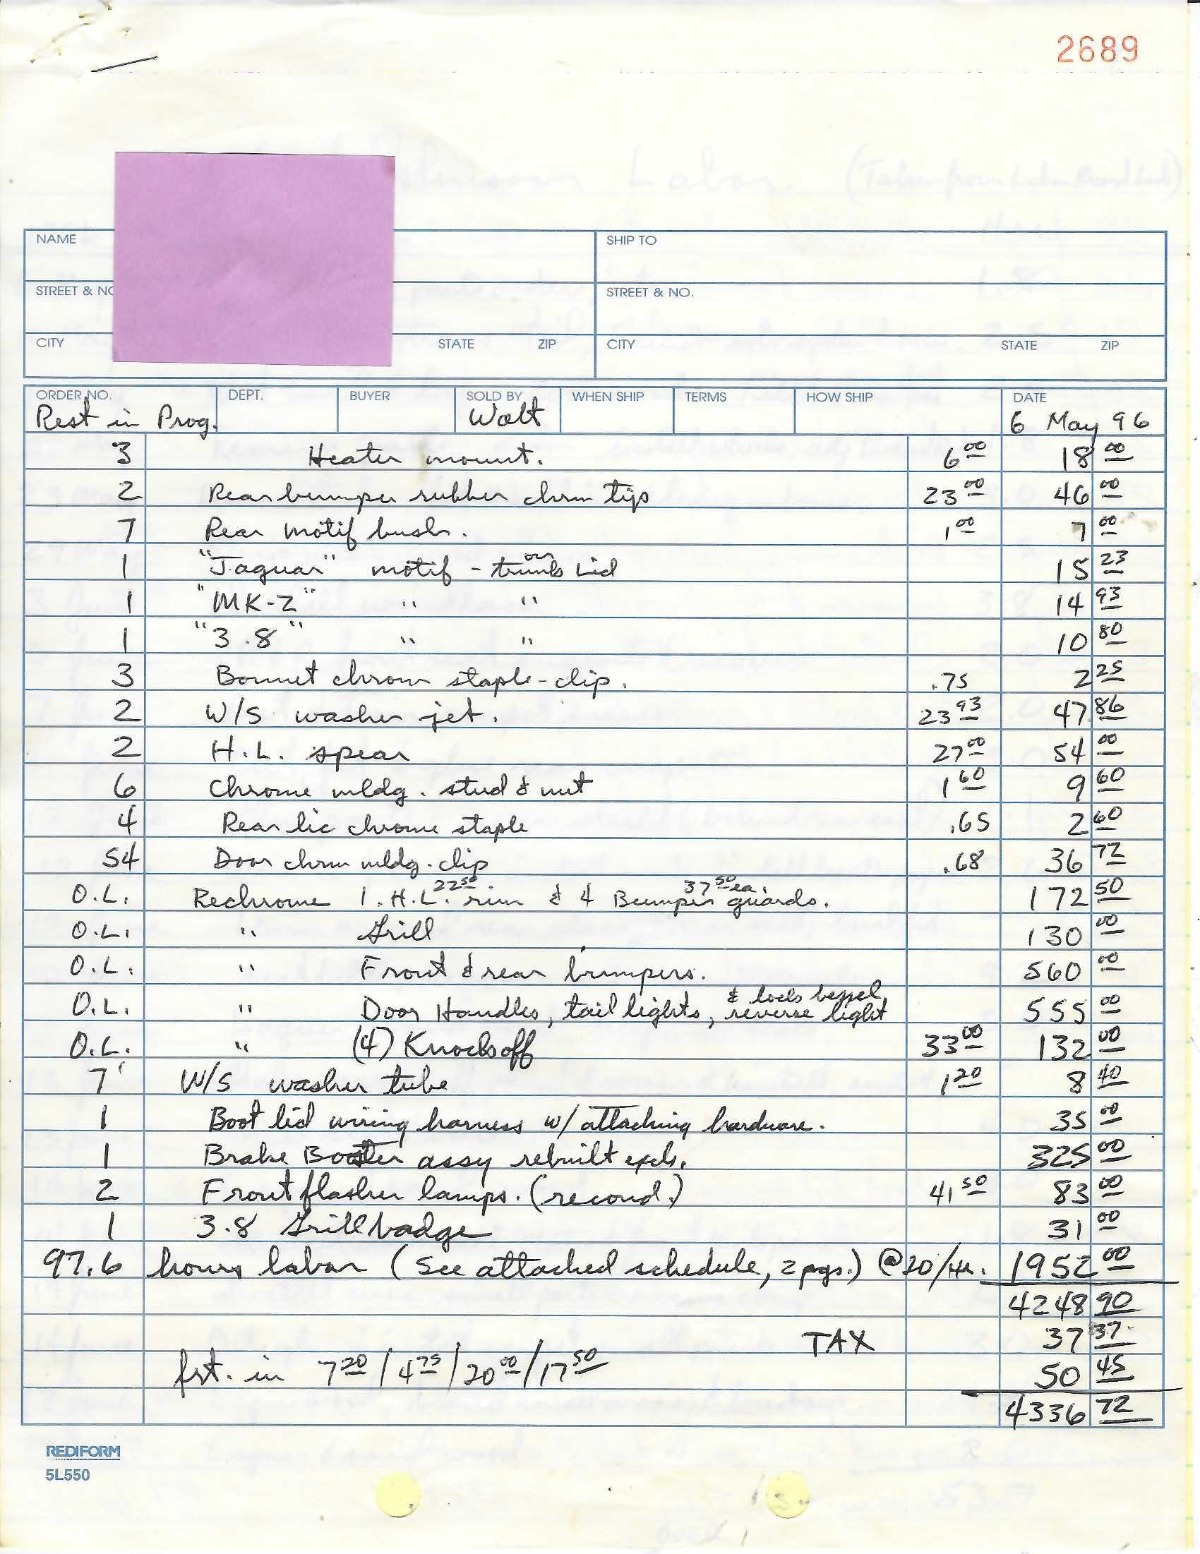 2689
NAME SHIP TO
STREET & NO STREET & NO.
CITY STATE ZIP CITY STATE ZIP
ORDER NO. DEPT. BUYER SOLD BY WHEN SHIP TERMS HOW SHIP DATE
Rest in Prog. Walt 6 May 96
3 Heater mount. 6 00 18 00
2 Rear bumper rubber chrm tips 23 00 46 00
7 Rear motif bush. 1 00 7 00
1 "Jaguar" motif - on trunk lid 15 23
1 "MK-2" " " 14 93
1 "3.8" " " 10 80
3 Bonnet chrom staple-clip. .75 2 25
2 W/S washer jet. 23 93 47 86
2 H.L. spear 27 00 54 00
6 Chrome mldg. stud & nut 1 60 9 60
4 Rear lic chrome staple .65 2 60
54 Door chrm mldg. clip .68 36 72
O.L. Rechrome 1. H.L. rim 22 50 & 4 Bumper guards. 37 50 ea. 172 50
O.L. " Grill 130 00
O.L. " Front & rear bumpers. 560 00
O.L. " Door Handles, tail lights, & locks bezzel reverse light 555 00
O.L. " (4) Knocksoff 33 00 132 00
7 W/S washer tube 1 20 8 40
1 Boot lid wiring harness w/ attaching hardware. 35 00
1 Brake Booster assy rebuilt exch. 325 00
2 Front flasher lamps. (recond.) 41 50 83 00
1 3.8 Grill badge 31 00
97.6 hours labor (See attached schedule, 2 pgs.) @20/Hr. 1952 00
4248 90
TAX 37 37
frt. in 7 20 / 4 75 / 20 00 / 17 50 50 45
4336 72
REDIFORM
5L550